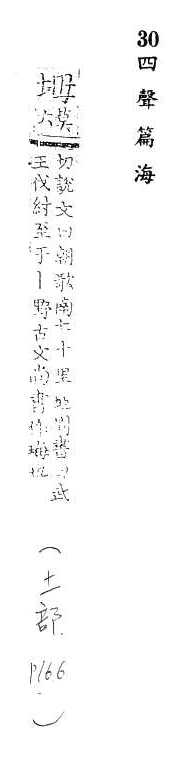 30四聲篇海
坶莫六
切說文曰朝歌南七十里地周書曰武
王伐紂至于丨野古文尚書作坶坶
（土部 P166）